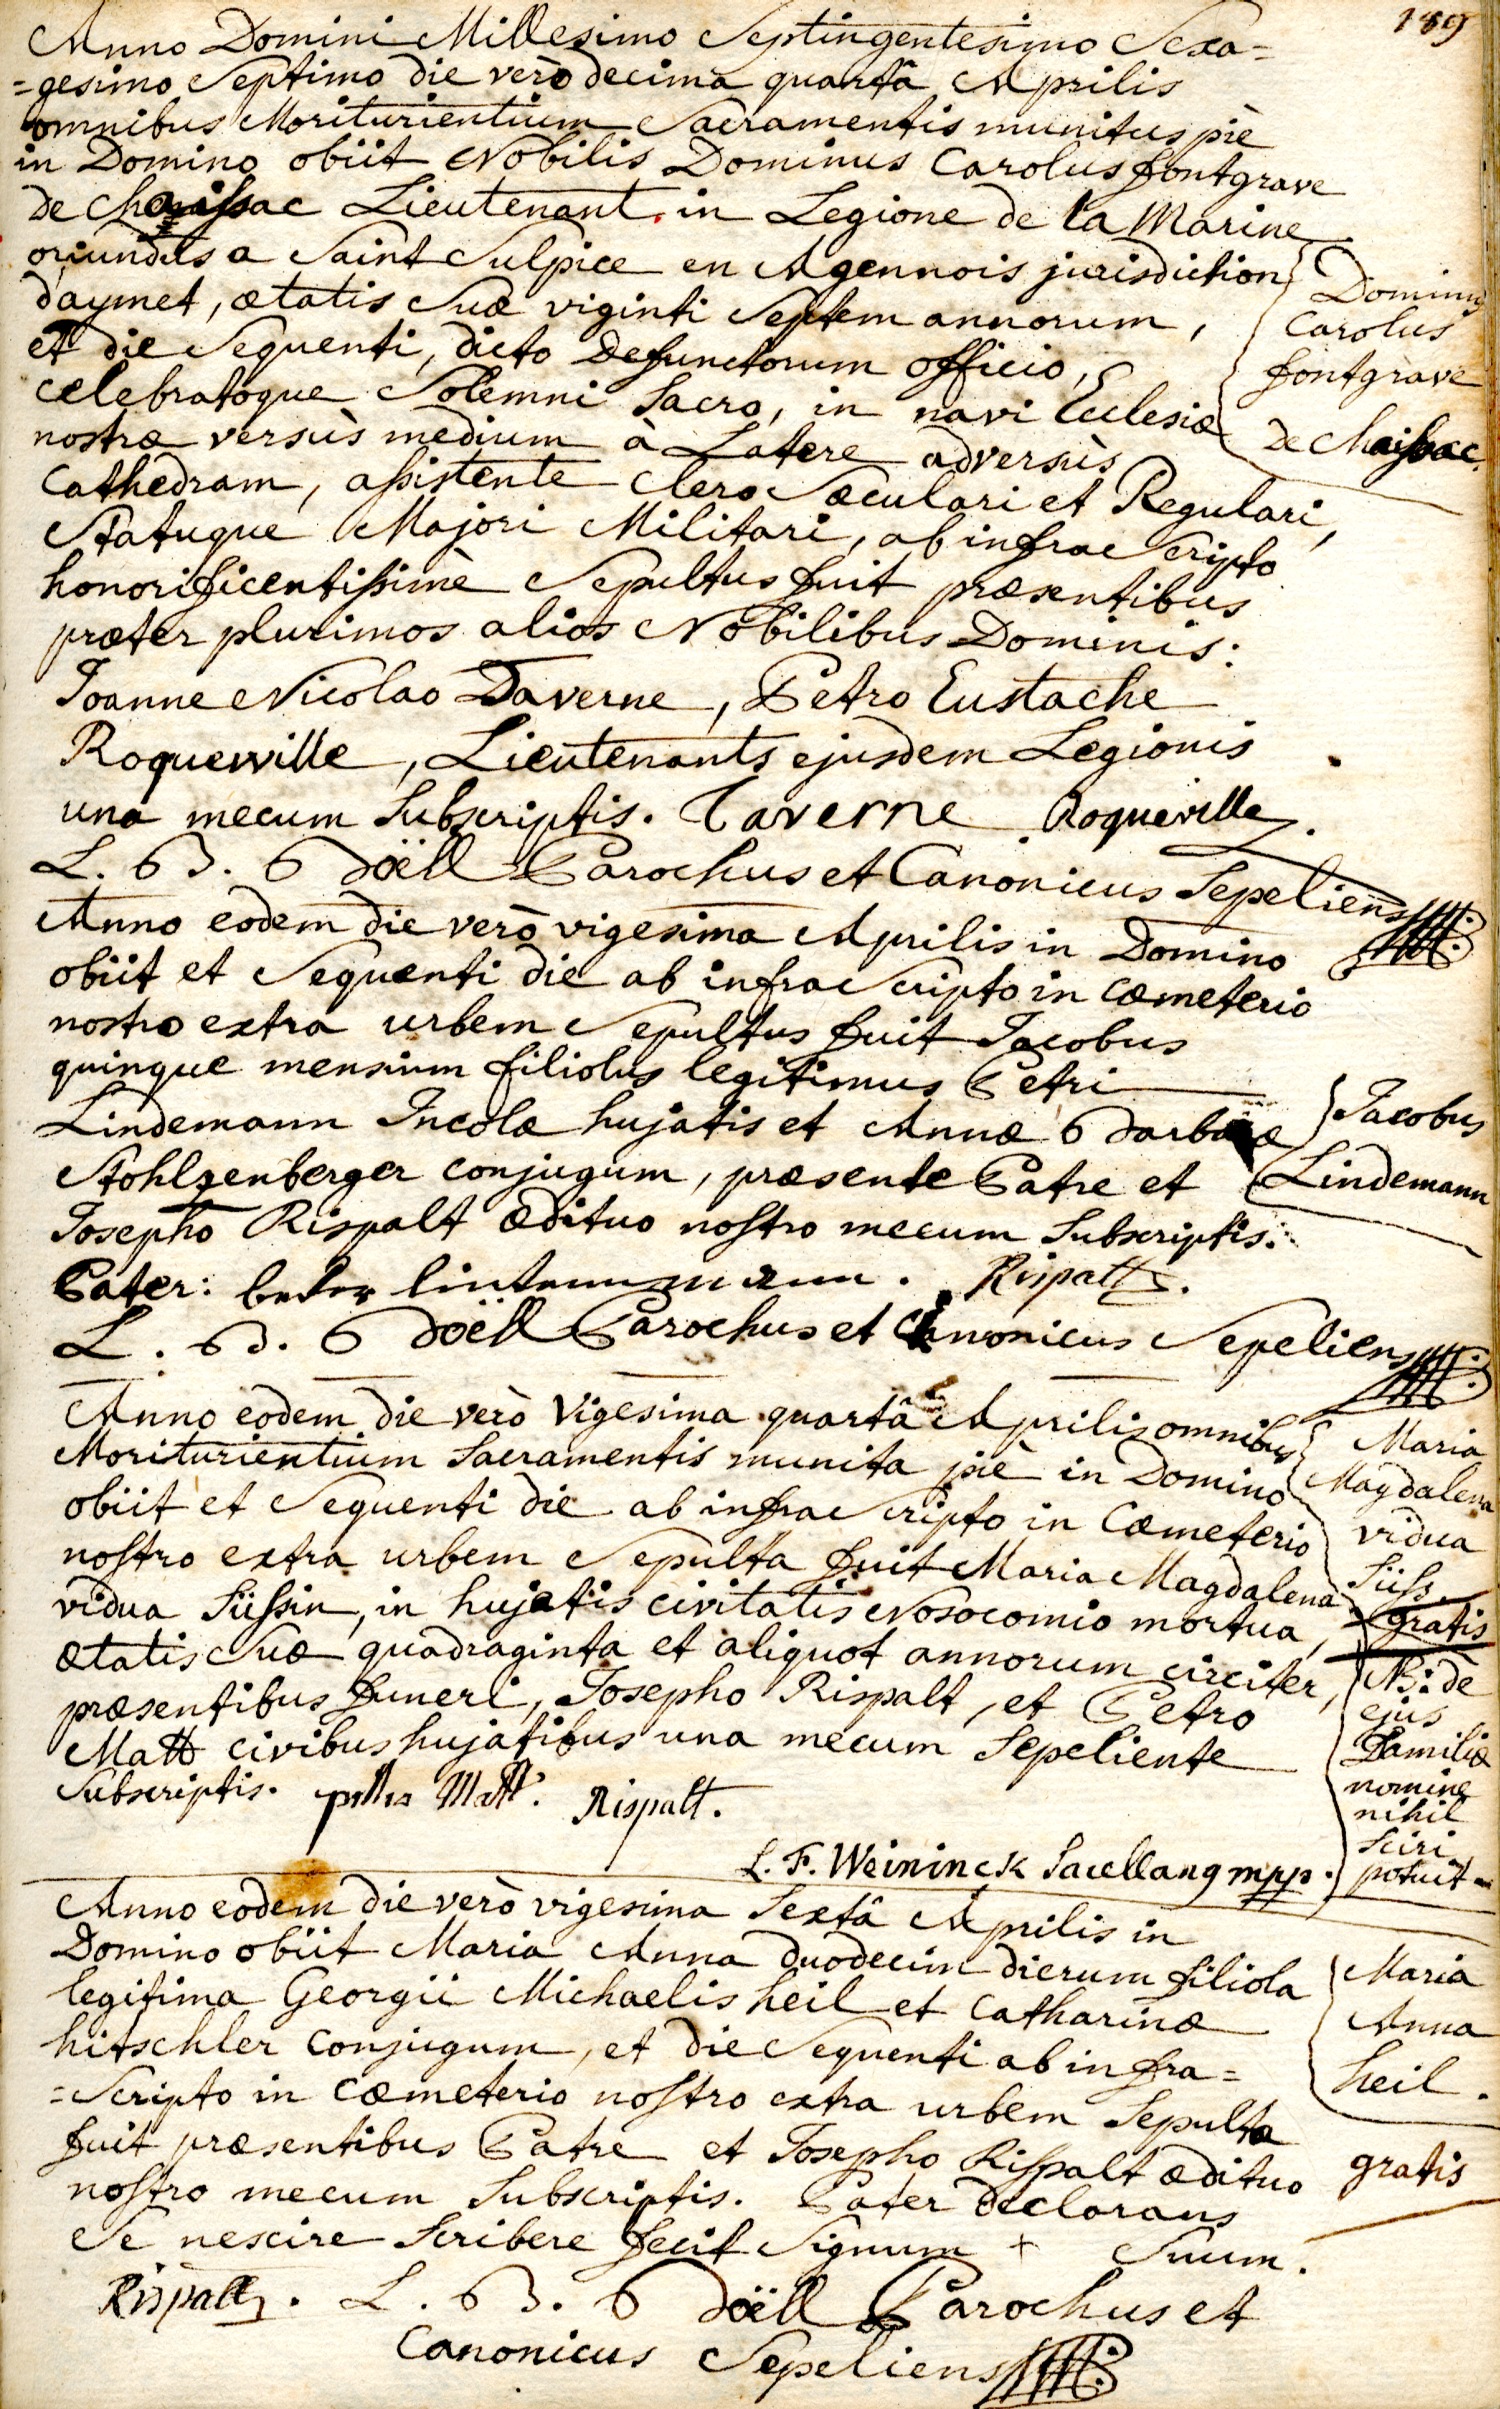 189
Anno Domini Millesimo Septingentesimo Sexa=
=gesimo Septimo die verò decima quartâ Aprilis
omnibus Moriturientium Sacramentis munitus piè
in Domino obiit Nobilis Dominus Carolus fontgrave
de Chaissac Lieutenant in Legione de la Marine
oriundus a Saint Sulpice en Agennois jurisdiction
daymet, ætatis Suæ viginti Septem annorum,
et die Sequenti, dicto Defunctorum officio,
celebratoque Solemni Sacro, in navi Ecclesiæ
nostræ versùs medium à Latere adversùs
Cathedram, assistente Clero Sæculari et Regulari,
Statuque Majori Militari, ab infra Scripto
honorificentissimè Sepultus fuit præsentibus
præter plurimos alios Nobilibus Dominis:
Joanne Nicolao Daverne, Petro Eustache
Roqueville, Lieutenants ejusdem Legionis
una mecum Subscriptis. Taverne Roqueville.
L. B. Boëll Parochus et Canonicus Sepeliens
Dominus
Carolus
fontgrave
de Chaissac.
Anno eodem die verò vigesima Aprilis in Domino
obiit et Sequenti die ab infra Scripto in Cœmeterio
nostro extra urbem Sepultus fuit Jacobus
quinque mensium filiolus legitimus Petri
Lindemann Incolæ hujatis et Annæ Barbaræ
Stohlzenberger conjugum, præsente Patre et
Josepho Rispalt ædituo nostro mecum Subscriptis.
Pater: beder lindenmann. Rispalt.
L. B. Boëll Parochus et Canonicus Sepeliens
Jacobus
Lindemann
Anno eodem die verò Vigesima quartâ Aprilis omnibus
Moriturientium Sacramentis munita piè in Domino
obiit et Sequenti die ab infra Scripto in Cœmeterio
nostro extra urbem Sepulta fuit Maria Magdalena
vidua Süssin, in hujatis civitatis Nosocomio mortua,
ætatis Suæ quadraginta et aliquot annorum circiter,
præsentibus funeri, Josepho Rispalt, et Petro
Matt civibus hujatibus una mecum Sepeliente
Subscriptis. Matt. Rispalt.
L. F. Weininck Sacellanq mpp.
Maria
Magdalena
vidua
Süss
gratis
NB: de
ejus
Familiæ
nomine
nihil
sciri
potuit
Anno eodem die verò vigesima Sextâ Aprilis in
Domino obiit Maria Anna duodecim dierum filiola
legitima Georgii Michaelis heil et Catharinæ
hitschler Conjugum, et die Sequenti ab infra=
=Scripto in Cœmeterio nostro extra urbem Sepulta
fuit præsentibus Patre et Josepho Rispalt ædituo
nostro mecum Subscriptis. Pater declarans
Se nescire Scribere fecit Signum + Suum.
Rispalt. L. B. Boëll Parochus et
Canonicus Sepeliens
Maria
Anna
heil.
gratis